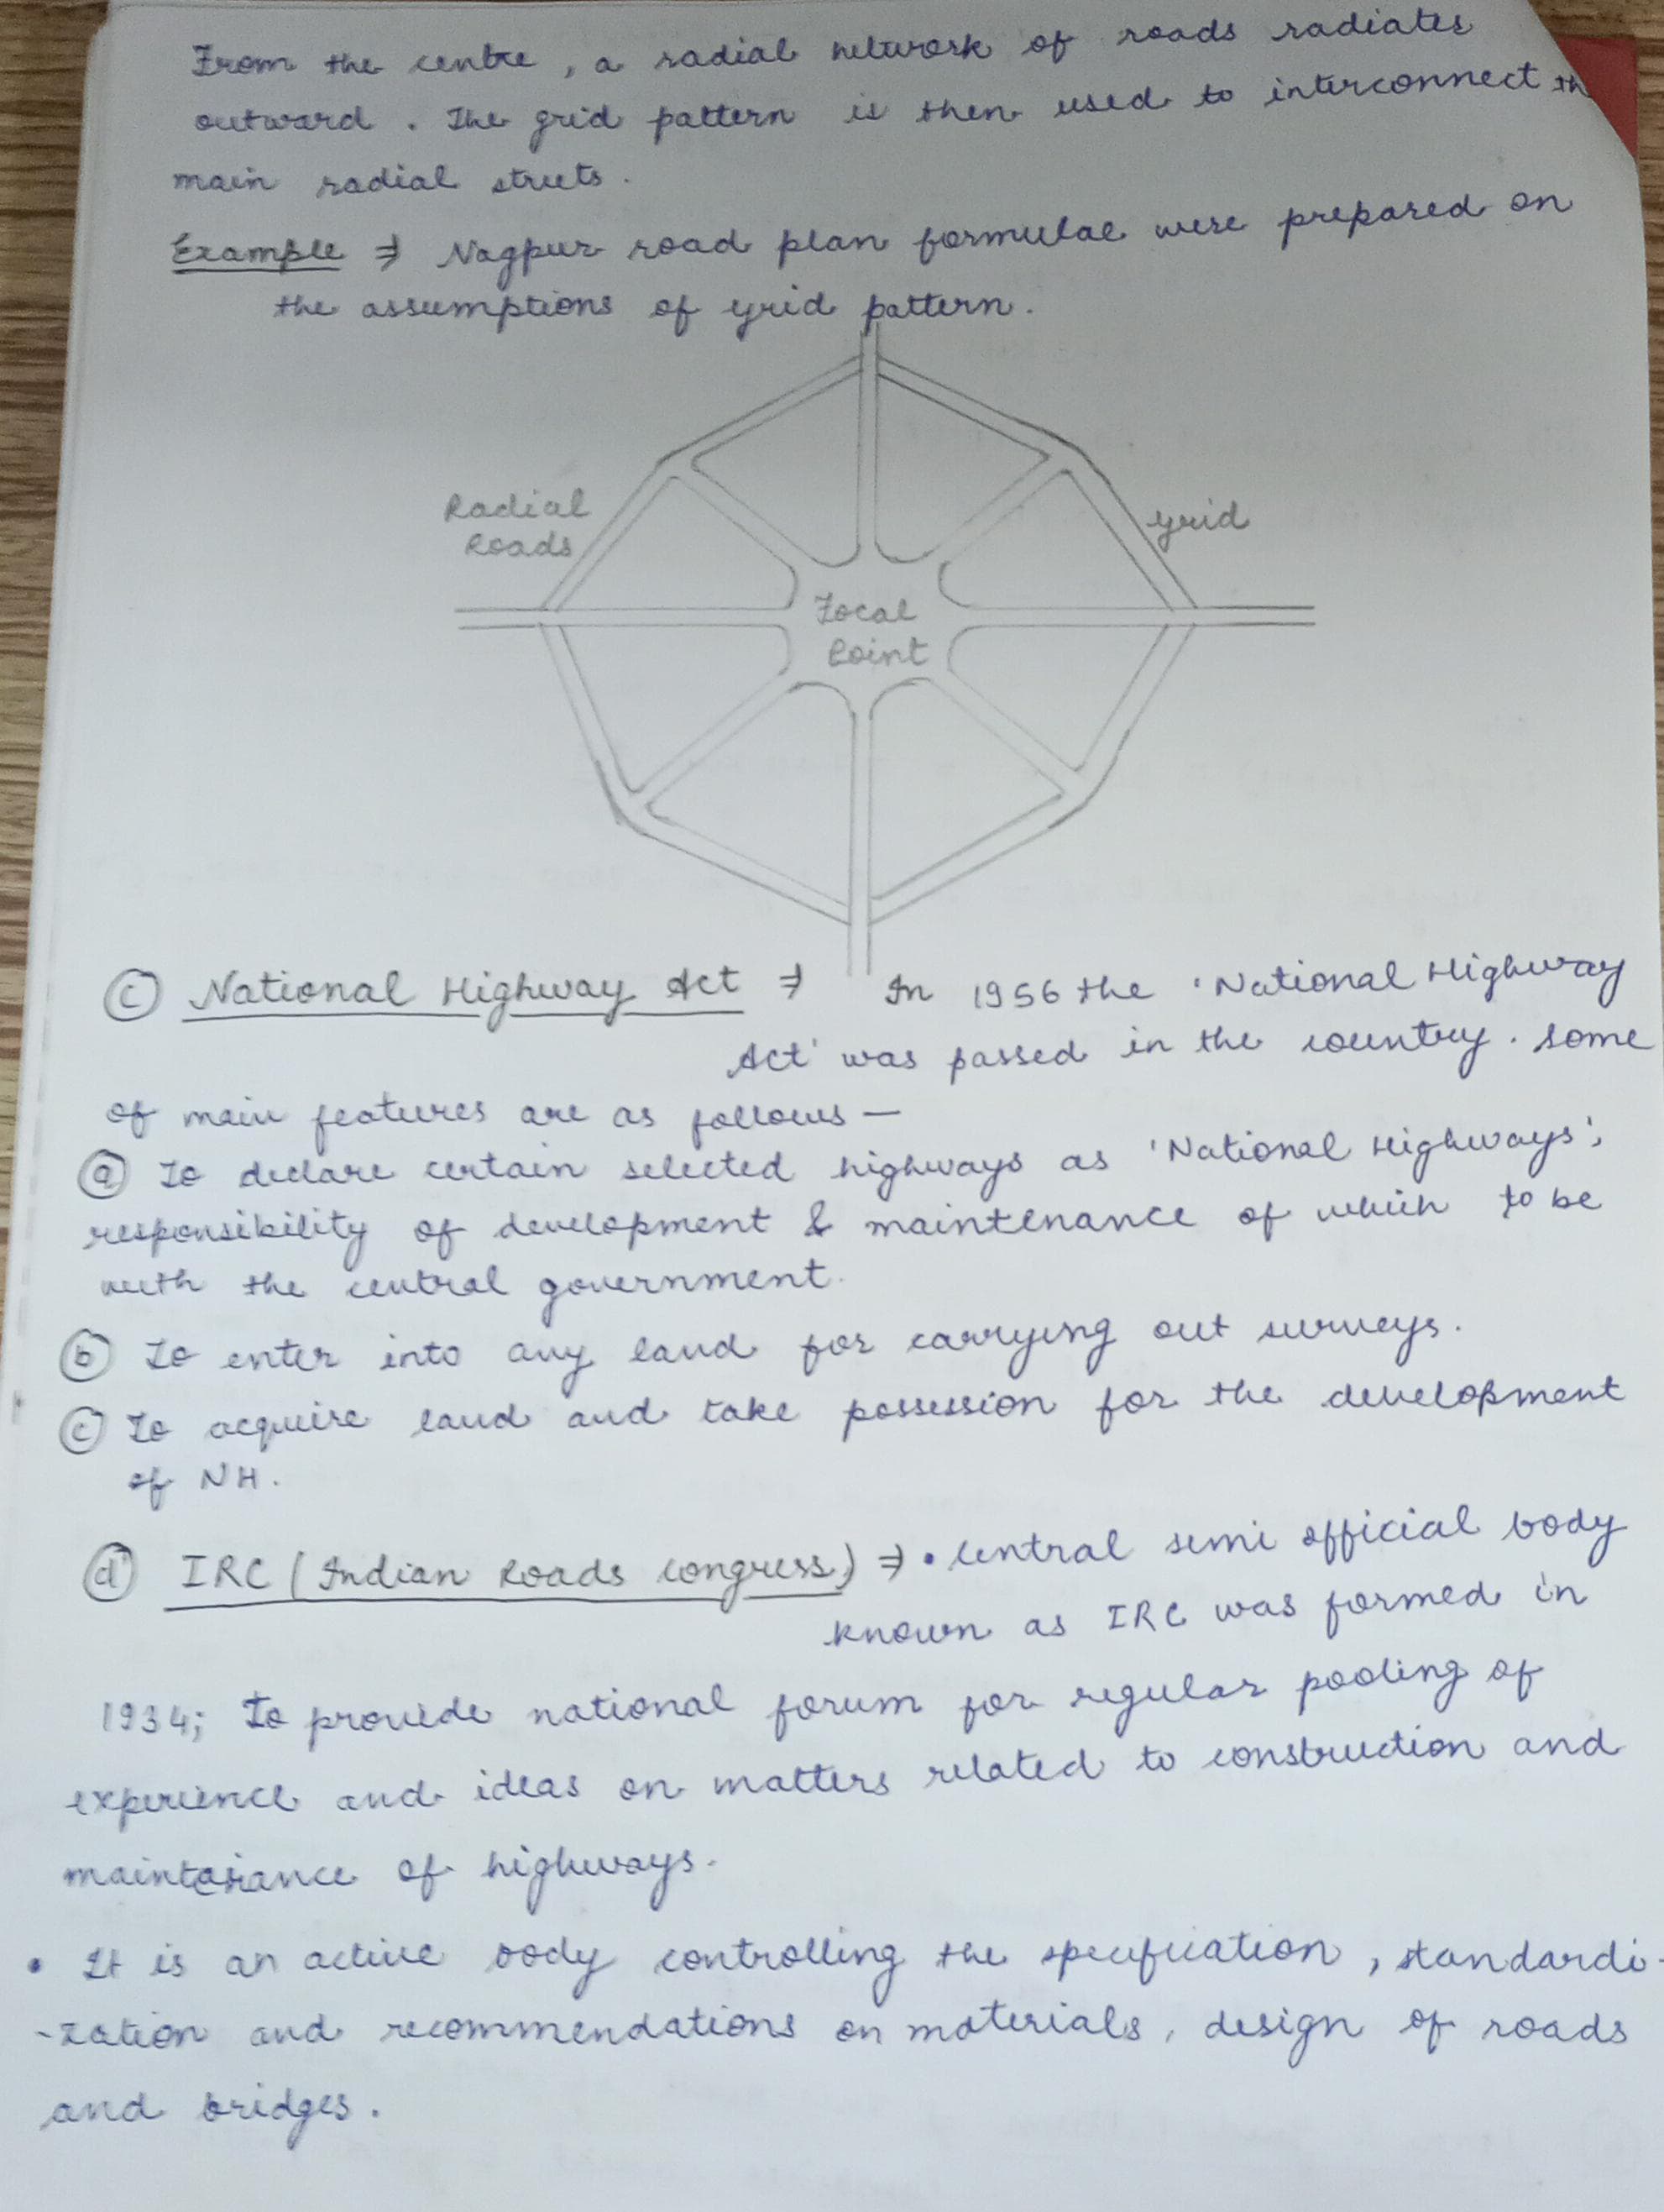 From the centre, a radial network of roads radiates
outward. The grid pattern is then used to interconnect th
main radial streets.
Example ⇒ Nagpur road plan formulae were prepared on
the assumptions of grid pattern.
Radial
Roads
grid
Focal
Point
(c) National Highway Act ⇒ In 1956 the 'National Highway
Act' was passed in the country. Some
of main features are as follows —
(a) To declare certain selected highways as 'National Highways';
responsibility of development & maintenance of which to be
with the central government.
(b) To enter into any land for carrying out surveys.
(c) To acquire land and take possession for the development
of NH.
(d) IRC (Indian Roads Congress) ⇒ • Central semi official body
known as IRC was formed in
1934; To provide national forum for regular pooling of
experience and ideas on matters related to construction and
of highways.
• It is an active body controlling the specification, standardi-
-zation and recommendations on materials, design of roads
and bridges.